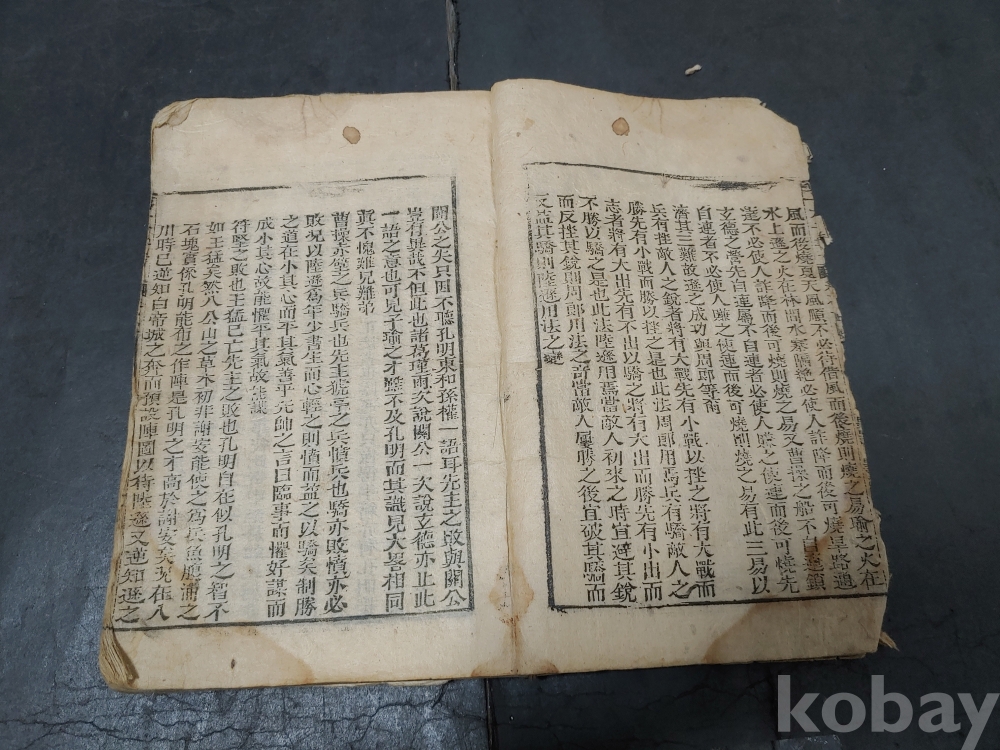 風而後燒夏天風順不必待借風而後燒則燒之易瑜之火在
水上遜之火在林間水寒隔絶必使人詐降而後可燒旱路通
達不必使人詐降而後可燒則燒之易又曹操之船不自連鎖
玄德之營先自連屬不自連者必使人賺之使連而後可燒先
自連者不必使人賺之使連而後可燒則燒之易有此三易以
濟其三難故遜之成功與周郎等爾
兵有挫敵人之銳者將有大戰先有小戰以挫之將有大戰而
勝先有小戰而勝以挫之是也此法周郎用焉兵有驕敵人之
志者將有大出先有不出以驕之將有大出而勝先有小出而
不勝以驕之是也此法陸遜用焉當敵人初來之時宜避其銳
而反挫其銳則周郎用法之奇當敵人屢勝之後宜破其驕而
又益其驕則陸遜用法之變
關公之失只因不聽孔明東和孫權一語耳先主之敗與關公
豈有異哉不但此也諸葛瑾兩次說關公一次說玄德亦止此
一語之意也可見子瑜之才雖不及孔明而其識見大畧相同
眞不愧難兄難弟
曹操赤壁之兵驕兵也先主猇亭之兵憤兵也驕亦敗憤亦必
敗况以陸遜爲年少書生而心輕之則憤而益之以驕矣制勝
之道在小其心而平其氣善乎先師之言曰臨事而懼好謀而
成小其心故能懼平其氣故能謀
符堅之敗也王猛已亡先主之敗也孔明自在似孔明之智不
如王猛矣然八公山之草木初非謝安能使之爲兵魚腹浦之
石塊實係孔明能布之作陣是孔明之才高於謝安矣况在入
川時已逆知白帝城之奔而預設陣圖以待陸遜又逆知遜之
kobay